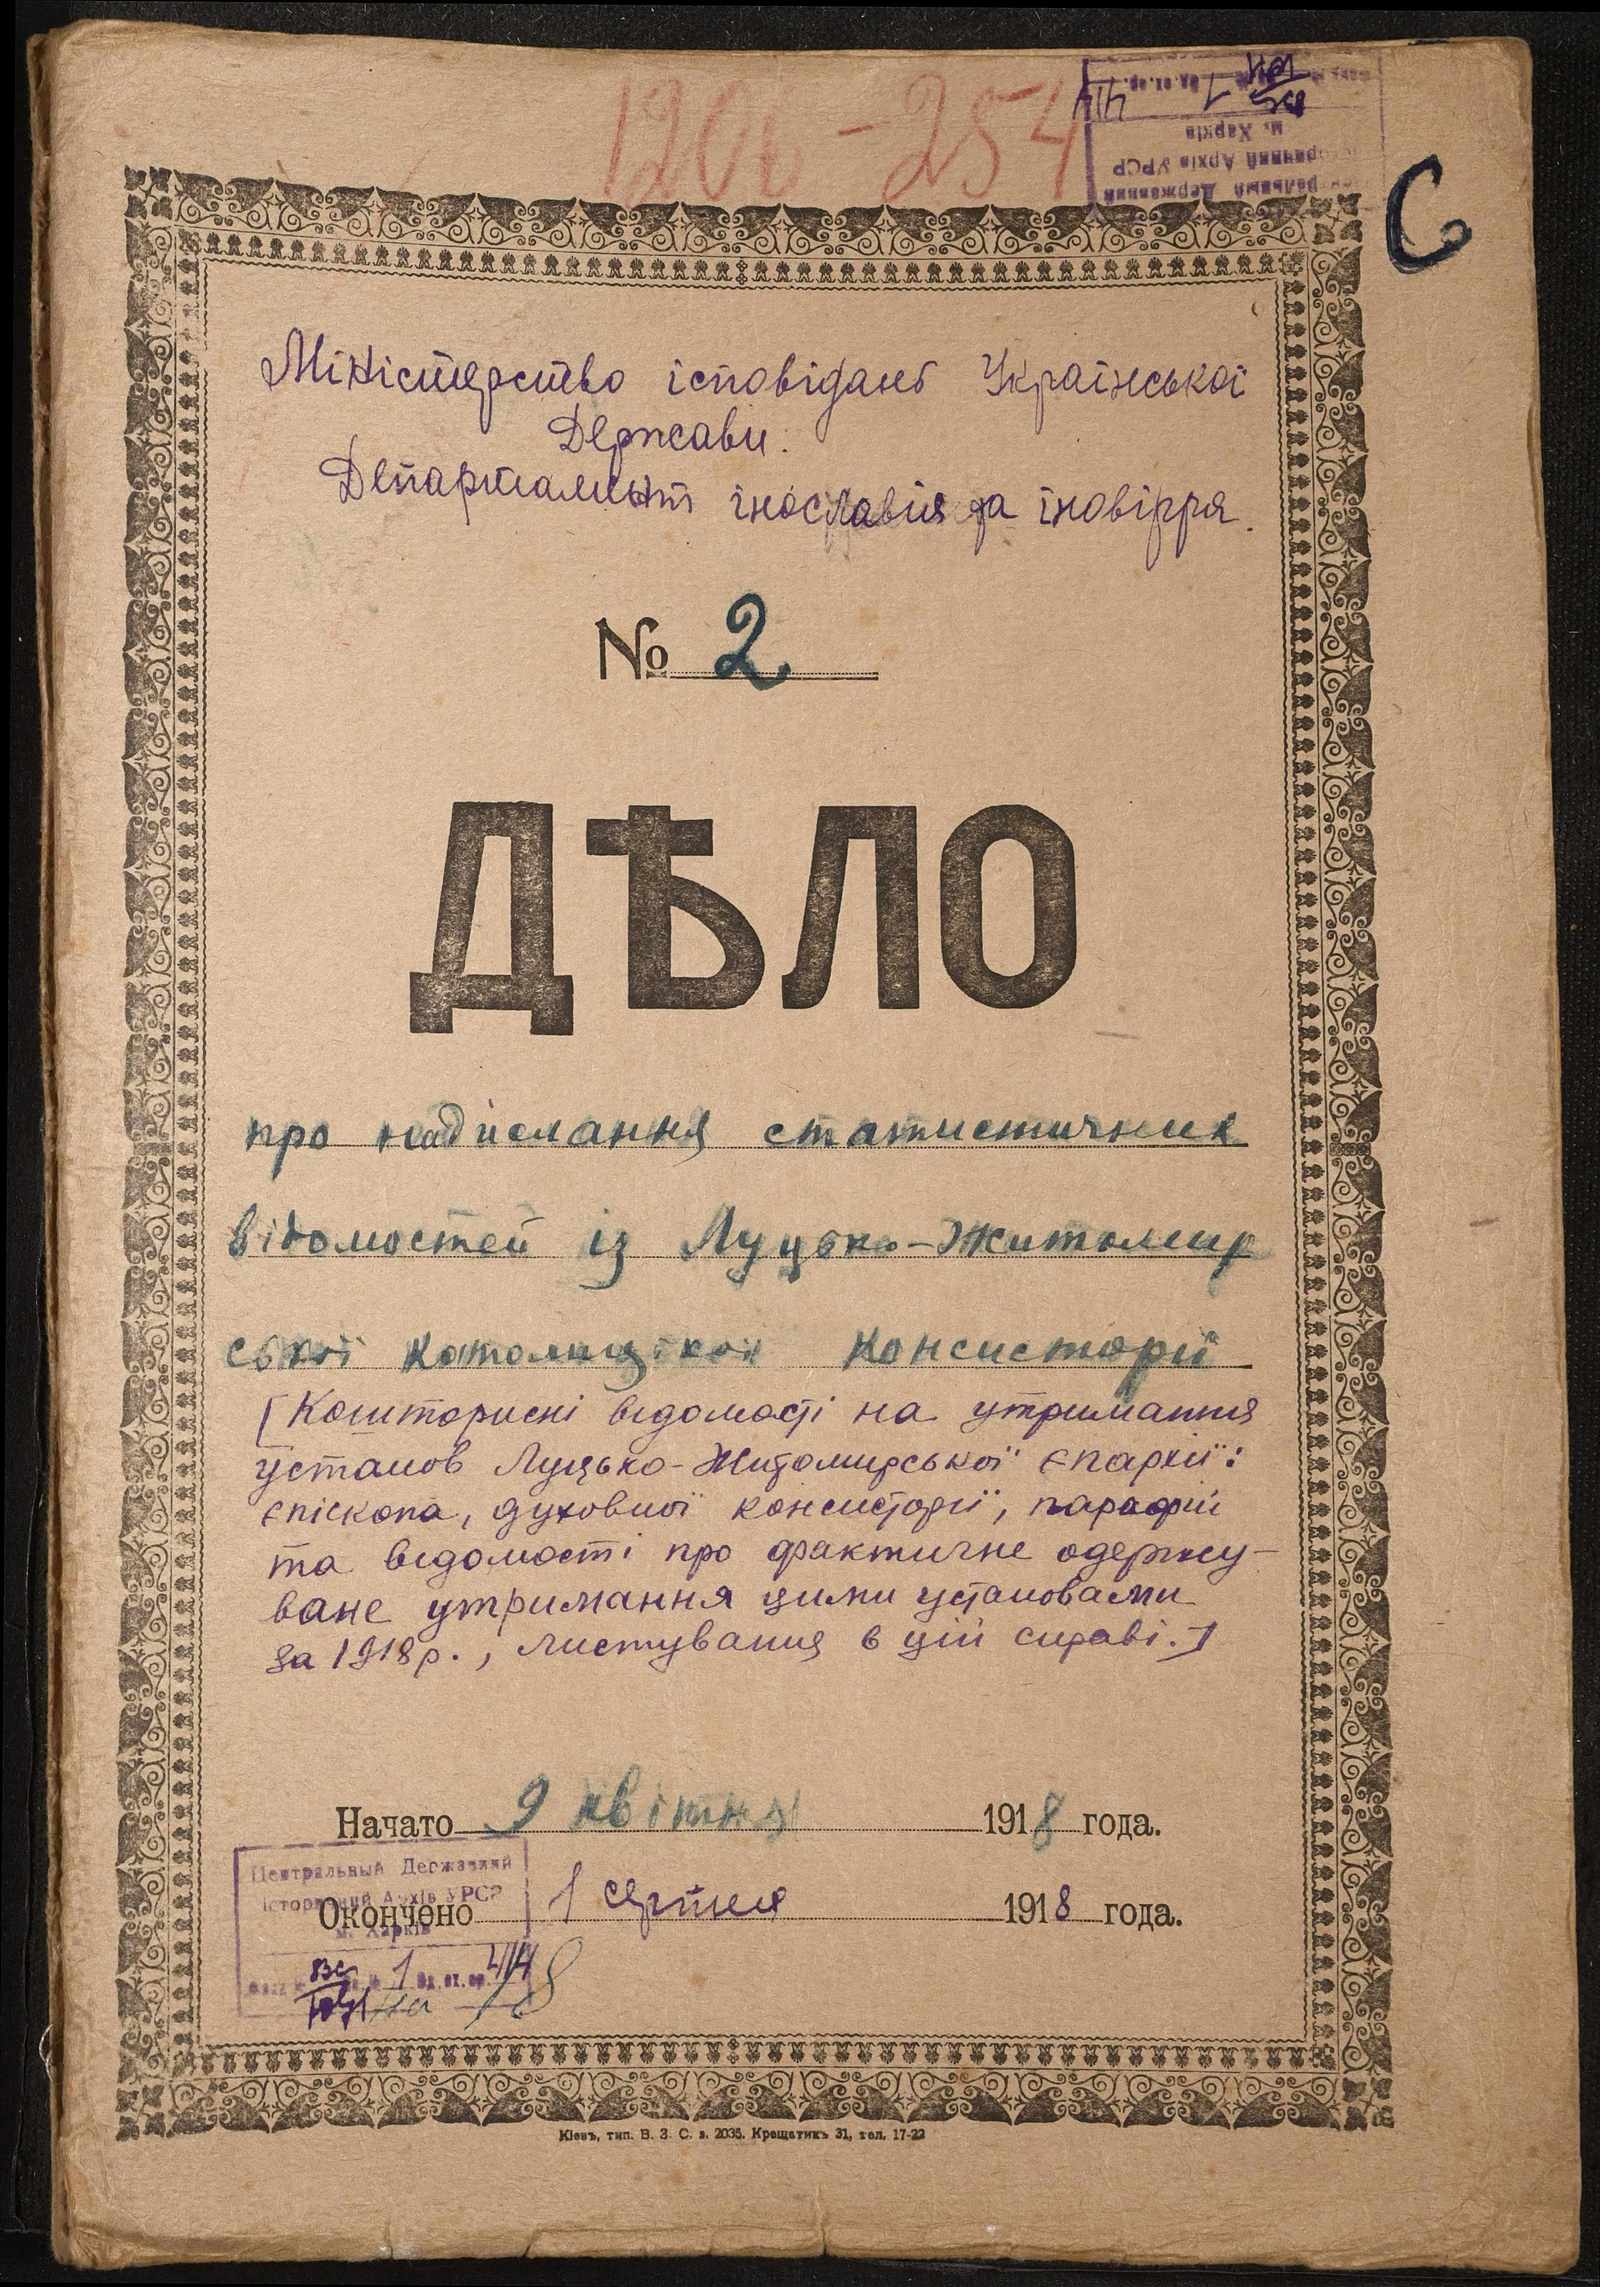 1206-254
Центральный Державний
Історичний Архів УРСР
м. Харків
1 414
С
Міністерство ісповідань Української
Держави.
Департамент інославія та іновірря.
№ 2
ДѢЛО
про надіслання статистичних
відомостей із Луцько-Житомир
ської католицької консисторії
[Кошторисні відомості на утримання
установ Луцько-Житомирської єпархії:
єпіскопа, духовної консисторії, парафій
та відомості про фактичне одержу-
ване утримання цими установами
за 1918 р., листування в цій справі.]
Начато 9 квітня 1918 года.
Окончено 1 серпня 1918 года.
Центральный Державний
Історичний Архів УРСР
м. Харків
1 од. зб. 414
Кіевъ, тип. В. З. С. з. 2035. Крещатикъ 31, тел. 17-22